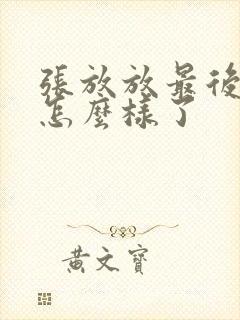 張放放最後
怎麼樣了
黃文寶